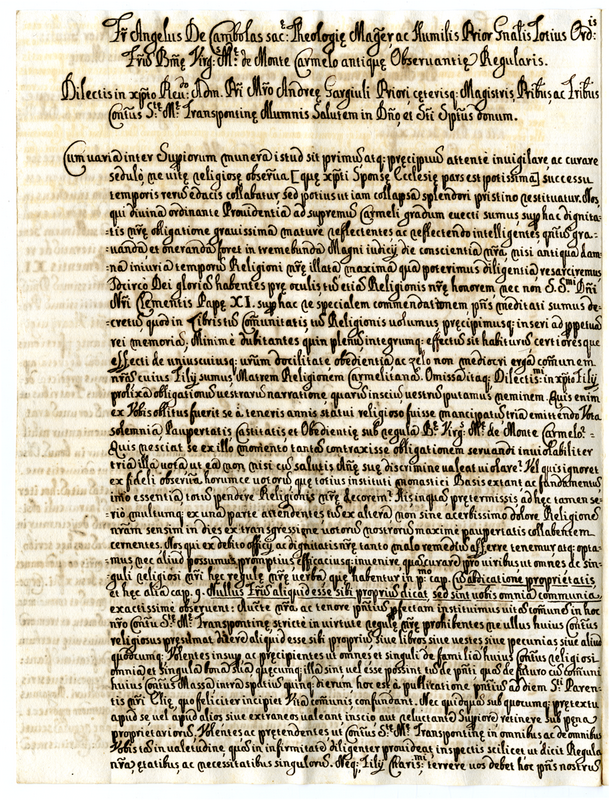 Fr̃ Angelus De Cambolas sac: Theologię Mag̃er, ac Humilis Prior Gnãlis Totius Ord: is
Frũ Bm̃ę Virg: Mę de Monte Carmelo antiquę Observantię Regularis.
Dilectis in xp̃to Reu:do Adm. Pr̃i Mr̃o Andreę Gargiuli Priori, cęterisq: Magistris, Pr̃ibus, ac Fr̃ibus
Conũs Stę Mę Transpontinę Alumnis Salutem in Dño, et Sti Sp̃tus donum.
Cum varia inter Sup̃iorum munera istud sit primũ atq: pręcipuũ attentè invigilare, ac curare
sedulò, ne vitę religiosę observa [quę xp̃ti Sponsę Ecclesię pars est potissima] successu
temporis rerũq edacis collabatur, sed potius ut iam collapsa splendori pristino restituatur. Nos,
qui divina ordinante Providentia ad supremũ Carmeli gradum evecti sumus, sup hac dignita=
=tis nr̃ę obligatione gravissima maturè reflectentes, ac reflectendo intelligentes gra=
vanda et oneranda foret in tremebunda Magni iudicij die conscientia nr̃a, nisi antiqua dam=
na iniuria temporũ Religioni nr̃ę illata maxima qua poterimus diligentia resarciremus.
Idcirco Dei gloria habentes prę oculis, et eius Religionis nr̃ę honorem, nec non S. S.mi Dñi
Nr̃i Clementis Papę XI. sup hac re specialem commendationem, pñs meditati sumus de=
=cretũ, quod in Libris tũ Comunitatis, tũ Religionis volumus, pręcipimusq: inseri ad ppetuã
rei memoriã. Minimè dubitantes quin plenũ, integrumq: effectũ sit habiturũ, certioresque
effecti de uniuscuiusq: vr̃um docilitate, obedientia, ac zelo non mediocri ergà comunem
nr̃am, cuius Filij sumus, Matrem Religionem Carmelitanã. Omissa itaq: Dilectis:mi in xp̃to Filij
prolixa obligationũ vestrarũ narratione, quarũ insciũ vestrũ putamus neminem. Quis enim
ex Vobis oblitus fuerit se à teneris annis statui religioso fuisse mancipatũ tria emittendo Vota
solemnia, Paupertatis, Castitatis, et Obedientię sub regula Bę Virg: Mę de Monte Carmelo?
Quis nesciat se ex illo momẽto tantã contraxisse obligationem servandi inviolabiliter
tria illa vota, ut ea non nisi cũ salutis ętnę suę discrimine valeat violare? Vel quis ignoret
ex fideli observa horumce votorũ, quę totius instituti monastici Basis extant, ac fundamentũ
imò essentia, totũ pendere Religionis nr̃ę decorem? His inquã pretermissis, ad hęc tamen se=
=riò multumq: ex una parte attendentes, et ex altera non sine acerbissimo dolore Religionẽ
nr̃am sensim in dies ex transgressione votorũ nostrorũ, maximè paupertatis collabentem
cernentes. Nos qui ex debito officij, ac dignitatis nr̃ę tanto malo remediũ afferre tenemur, atq: opta=
mus nec aliud possumus promptius, efficacius q: invenire, quã curare pro viribus ut omnes, ac sin=
guli religiosi nr̃i hęc regulę nr̃ę verba, quę habentur in p:mo cap. Cũ abdicatione proprietatis,
et hęc alia cap. 9. Nullus Fr̃ũ aliquid esse sibi propriũ dicat, sed sint vobis omnia communia
exactissimè observent: Aucte nr̃a, ac tenore pñtium pfectam instituimus vitã comunẽ in hoc
nr̃o Conũ S.tę Mę Transpontinę, strictè in virtute regulę nr̃ę prohibentes ne ullus huius Conũs
religiosus pręsumat dicere aliquid esse sibi propriũ sive libros, sive vestes, sive pecunias, sive aliud
quodcumq: Volentes insup, ac pręcipientes ut omnes, et singuli de familia huius Conũs religiosi
omnia, et singula bona sua quęcumq: illa sint, vel esse possint, tũ de pñti, quã de futuro cũ comuni
huius Conũs Massa intrà spatiũ quinq: dierum hoc est à publicatione pñtium ad diem S.ti Paren=
tis nr̃i Elię quo feliciter incipiet Vita comunis confundant. Nec quidquã sub quocumq: prętextu
apud se, vel apud alios sive extraneos valeant inscio aut reluctante Sup̃iore retinere sub pęna
proprietariorũ. Volentes, ac prętendentes ut Conũs S.tę Mę Transpontinę in omnibus, ac de omnibus
Vobis tũ in valetudine, quã in infirmitate diligenter provideat inspectis scilicet ut dicit Regula
nr̃a, ętatibus, ac necessitatibus singulorũ. Neq: Filij Charis:mi terrere vos debet hoc pñs nostrũ